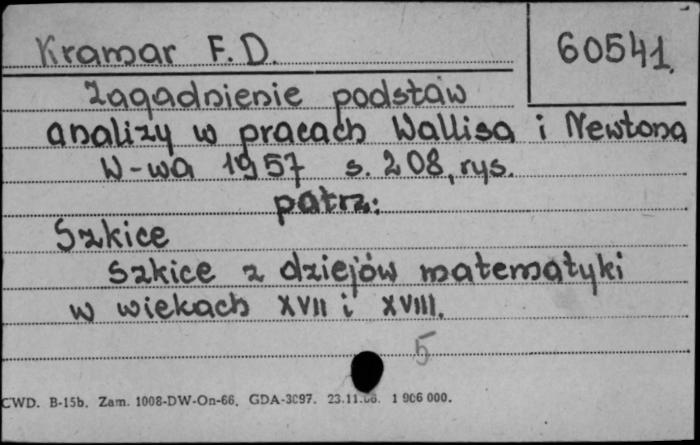 Kramar F. D.
60541.
Zagadnienie podstaw
analizy w pracach Wallisa i Newtona
W-wa 1957 s. 208, rys.
patrz:
Szkice
szkice z dziejów matematyki
w wiekach XVII i XVIII.
5
CWD. B-15b. Zam. 1008-DW-On-66. GDA-3097. 23.11.66. 1 906 000.